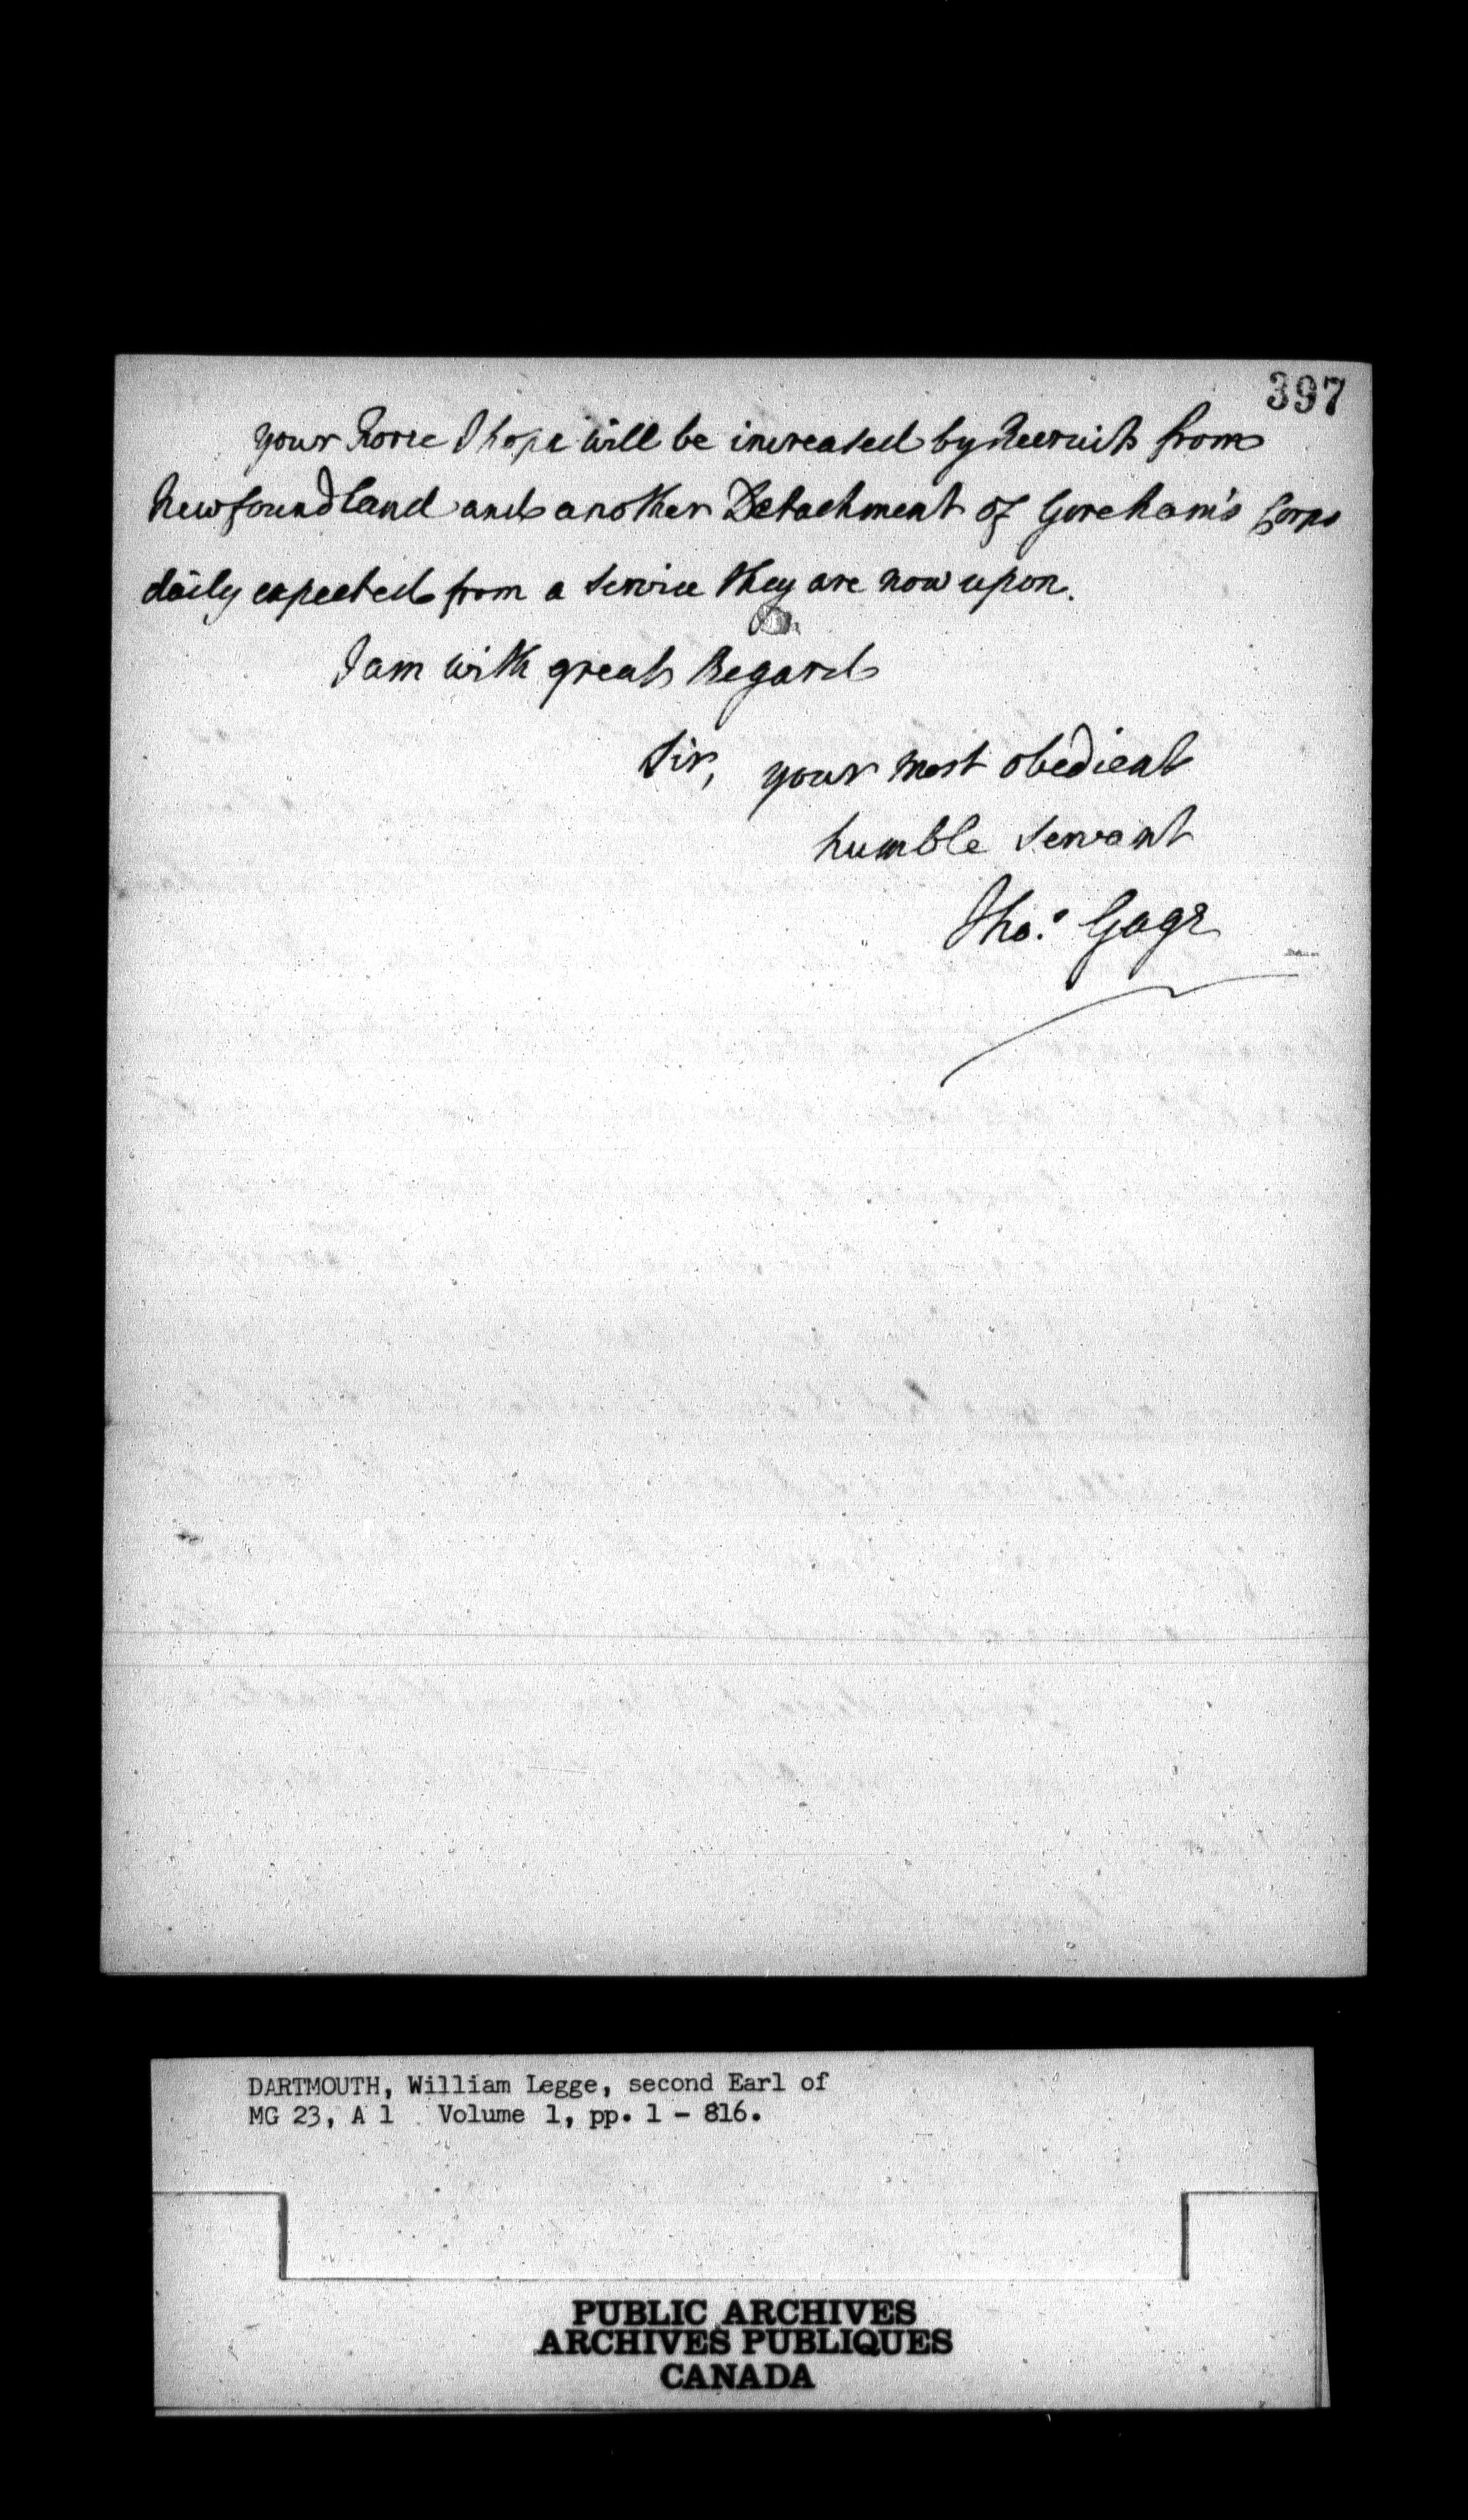 397
your Force I hope will be increased by Recruits from
Newfoundland and another Detachment of Goreham's Corps
daily expected from a Service they are now upon.
I am with great Regard
Sir, your most obedient
humble Servant
Tho.s Gage
DARTMOUTH, William Legge, second Earl of
MG 23, A 1 Volume 1, pp. 1 - 816.
PUBLIC ARCHIVES
ARCHIVES PUBLIQUES
CANADA